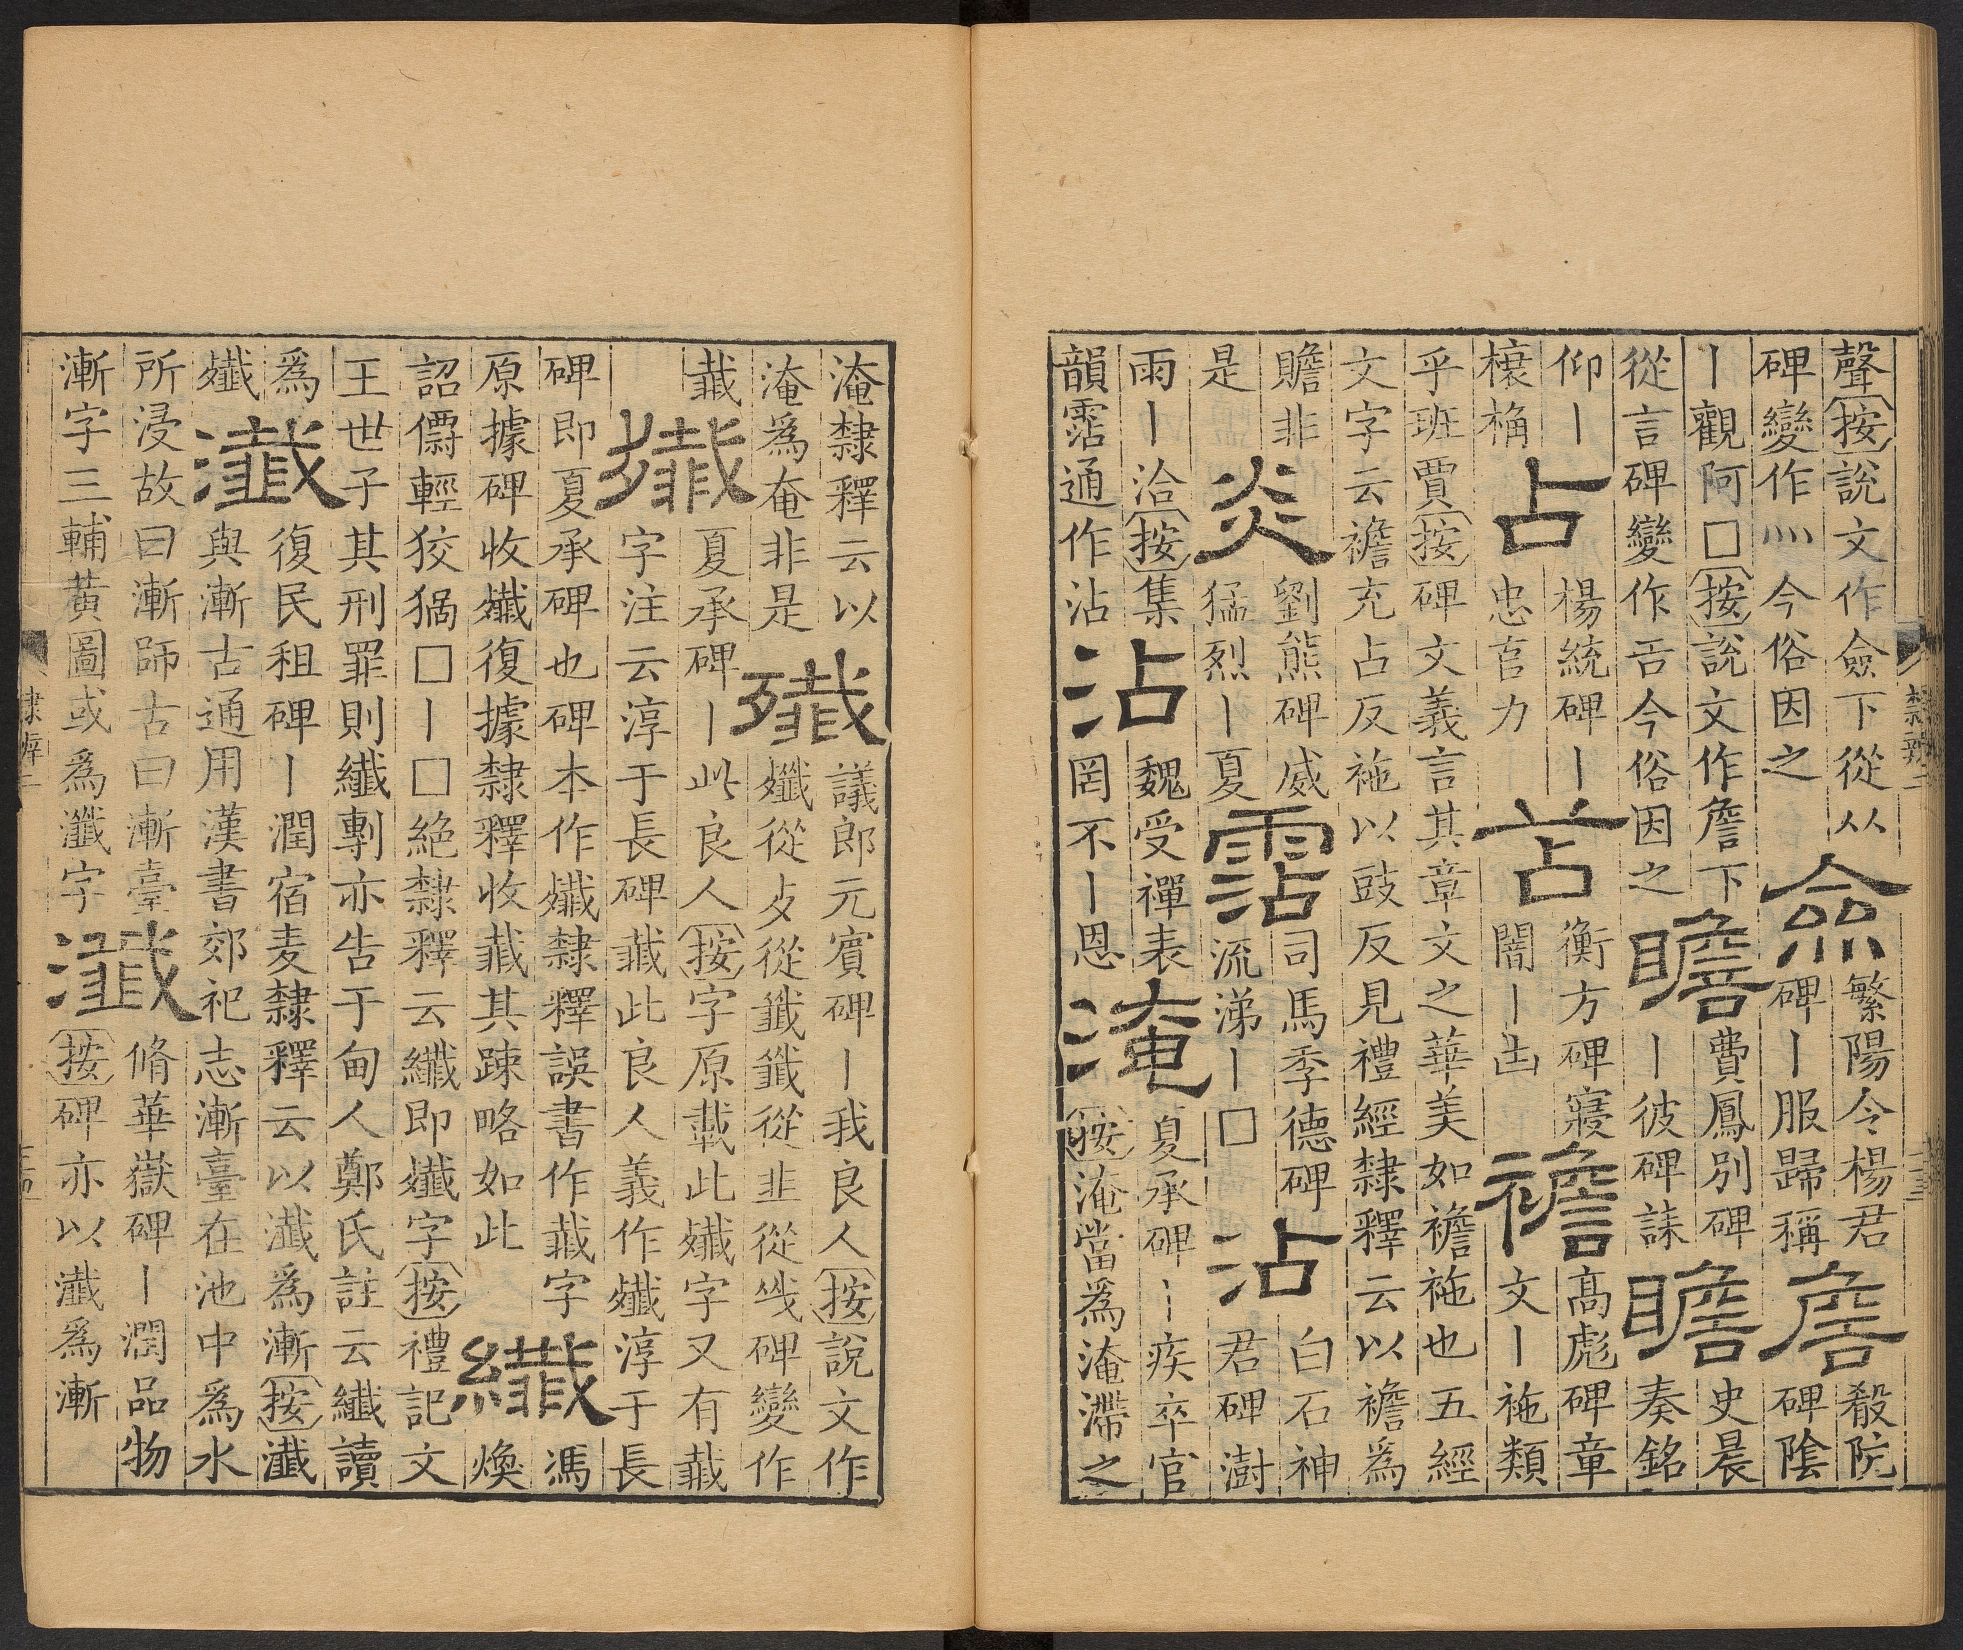 聲按說文作僉下從从
碑變作灬今俗因之
僉
繁陽令楊君
碑丨服歸稱
詹
殽阬
碑陰
丨觀阿□按說文作詹下
從言碑變作吉今俗因之
瞻
費鳳別碑
丨彼碑誄
瞻
史晨
奏銘
仰丨
榱桷
占
楊統碑丨
忠直力
苫
衡方碑寢
闇丨凷
襜
高彪碑章
文丨袘類
乎班賈按碑文義言其章文之華美如襜袘也五經
文字云襜充占反袘以豉反見禮經隸釋云以襜爲
贍非
是
炎
劉熊碑威
猛烈丨夏
霑
司馬季德碑
流涕丨□
沾
白石神
君碑澍
雨丨洽按集
韻霑通作沾
沾
魏受禪表
罔不丨恩
淹
夏承碑丨疾卒官
按淹當爲淹滯之
隸辨二
淹隸釋云以
淹爲奄非是
殲
議郎元賓碑丨我良人按說文作
殲從歺從韱韱從韭從㦰碑變作
韯
殲
夏承碑丨此良人按字原載此殲字又有韯
字注云淳于長碑韯此良人義作殲淳于長
碑即夏承碑也碑本作殲隸釋誤書作韯字
原據碑收殲復據隸釋收韯其踈略如此
纖
馮
煥
詔輕狡猾□丨□絕隸釋云纖即殲字按禮記文
王世子其刑罪則纖剸亦告于甸人鄭氏註云纖讀
爲
殲
瀸
復民租碑丨潤宿麦隸釋云以瀸爲漸按瀸
與漸古通用漢書郊祀志漸臺在池中爲水
所浸故曰漸師古曰漸臺
漸字三輔黃圖或爲瀸字
瀸
脩華嶽碑丨潤品物
按碑亦以瀸爲漸
隸辨二